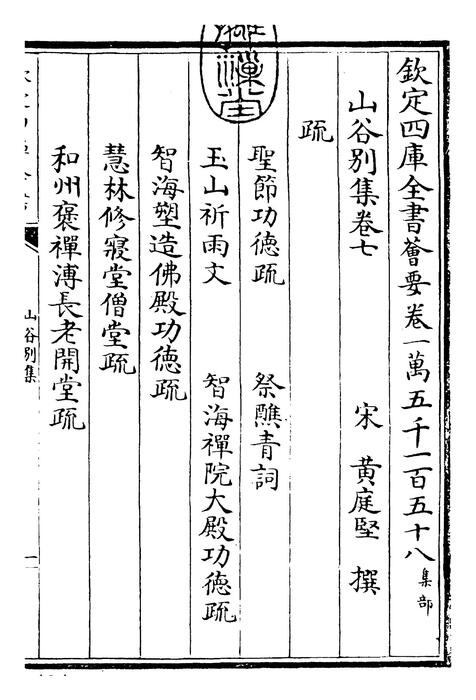 欽定四庫全書薈要卷一萬五千一百五十八 集部
山谷別集卷七 宋 黃庭堅 撰
疏
聖節功徳疏 祭醮青詞
玉山祈雨文 智海禪院大殿功徳疏
智海塑造佛殿功徳疏
慧林修寢堂僧堂疏
和州襃禪溥長老開堂疏
山谷別集
一